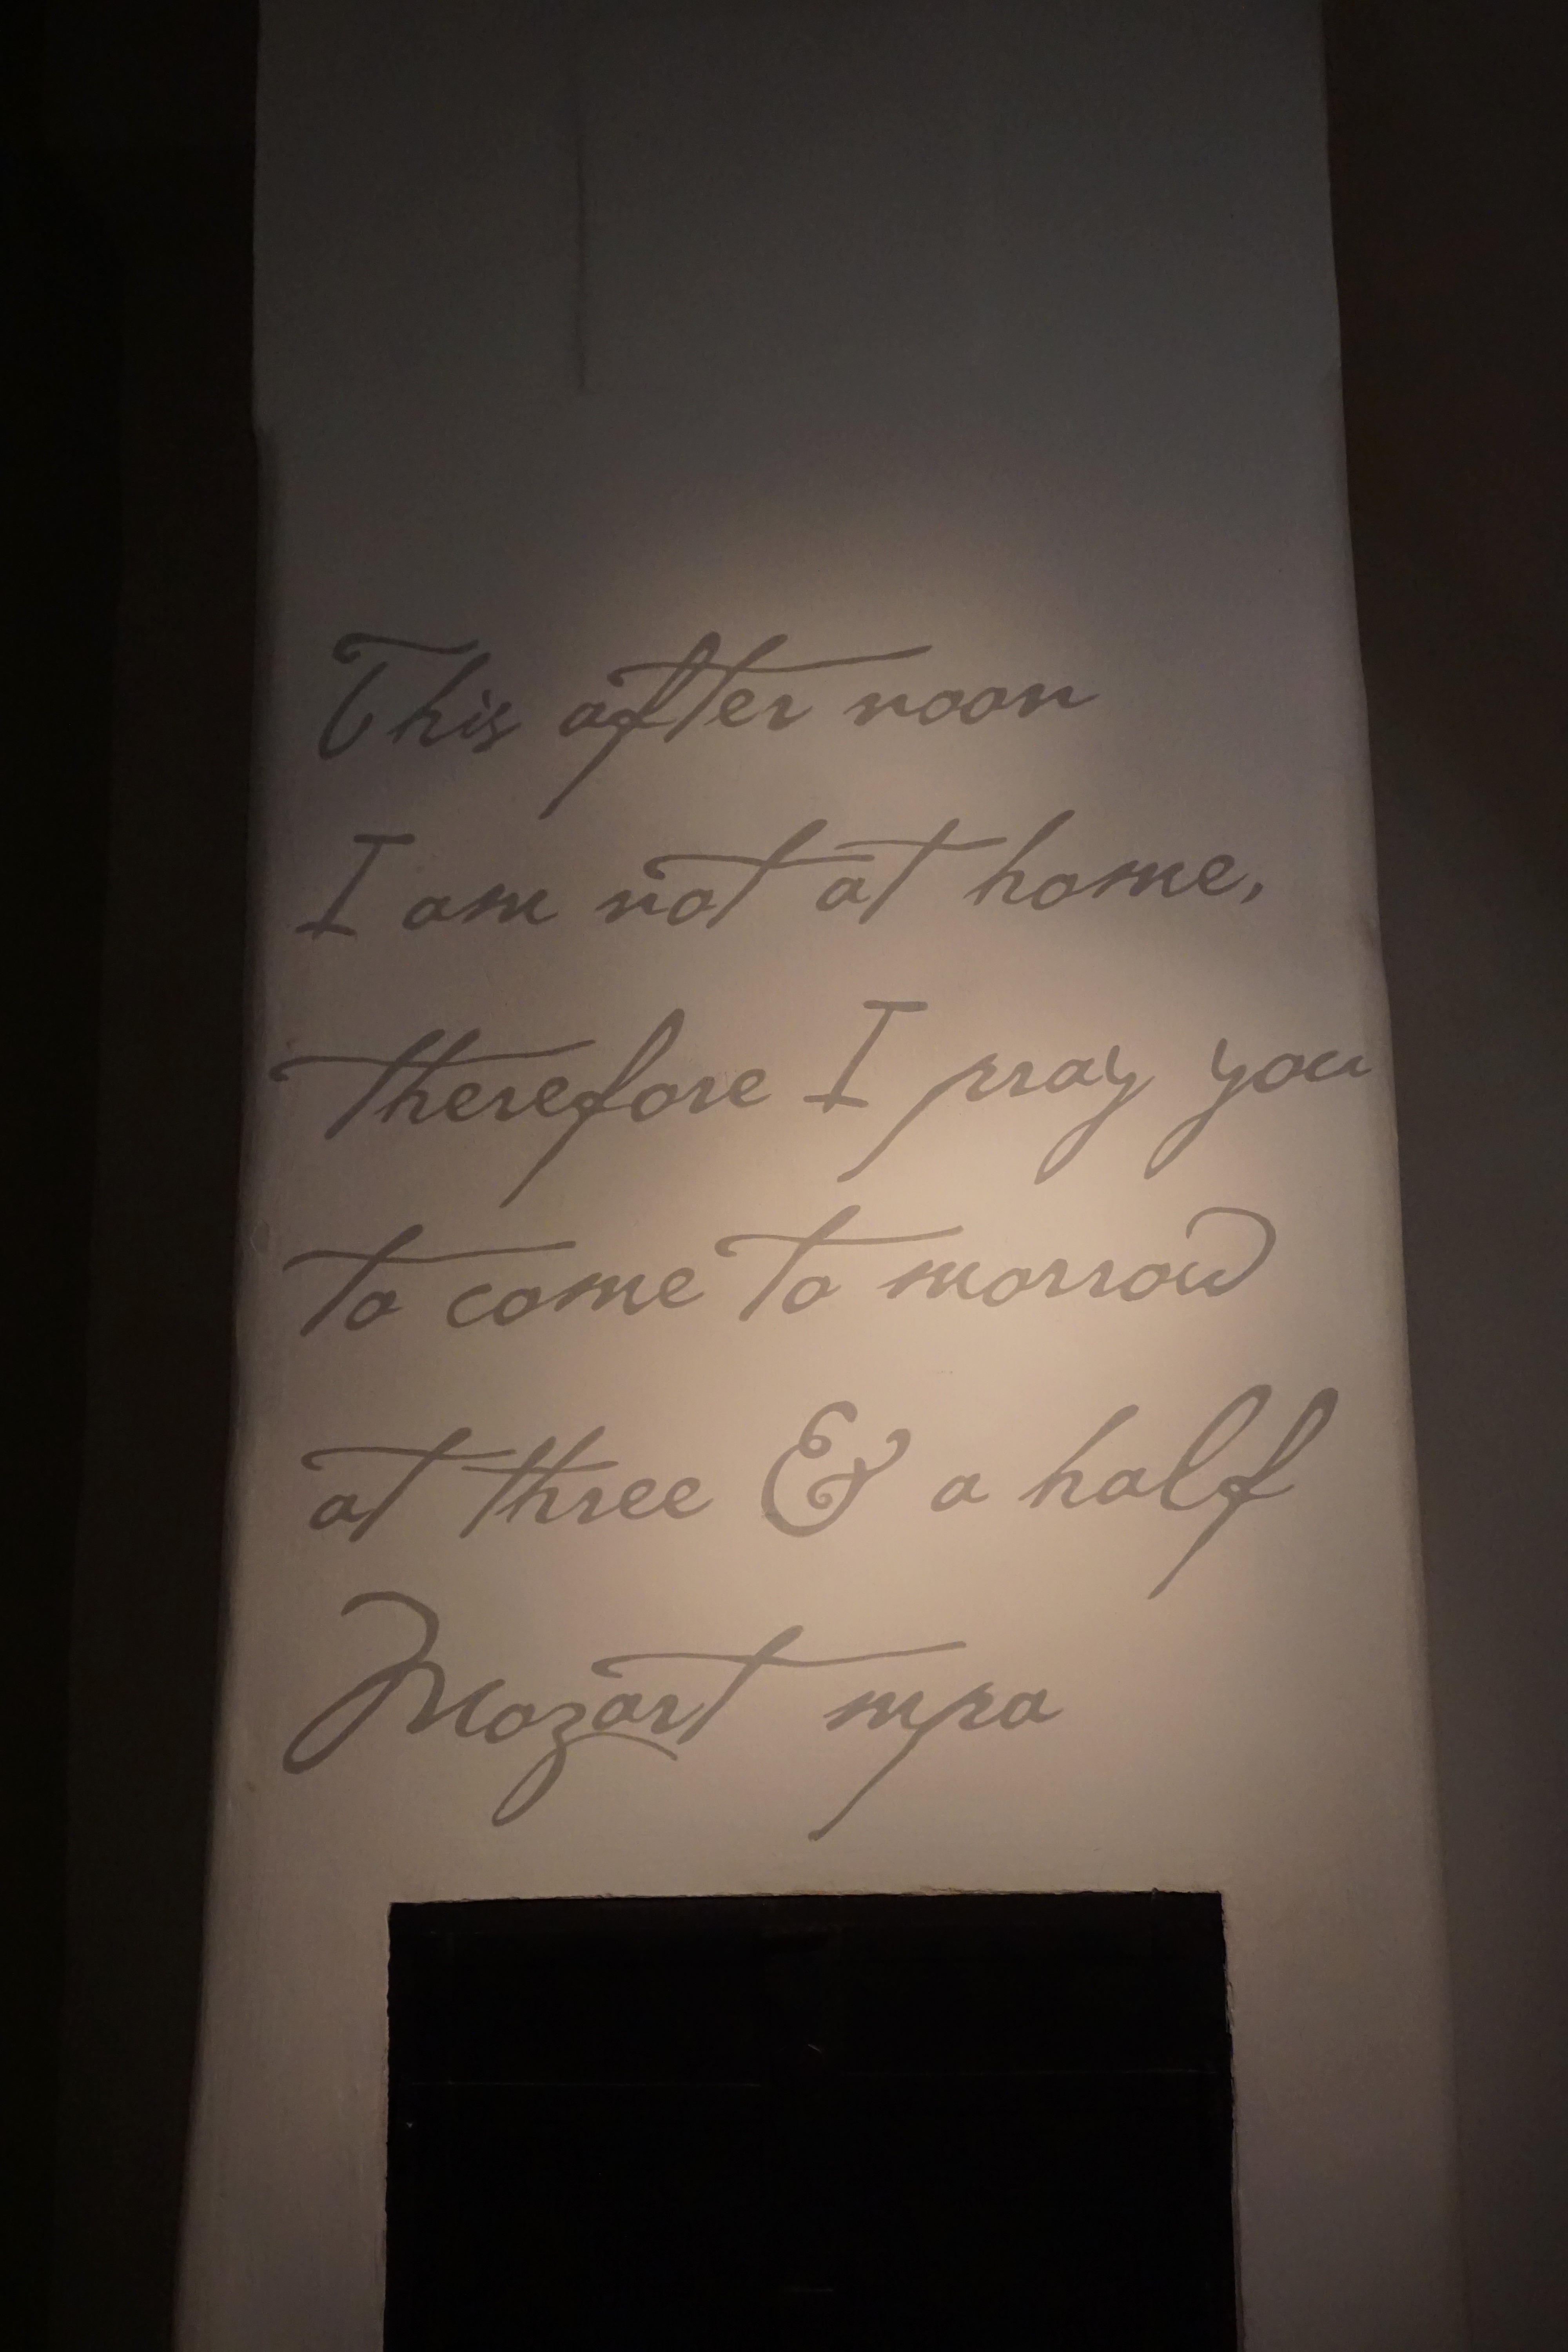 This after noon
I am not at home,
therefore I pray you
to come to morrow
at three & a half
Mozart mpa